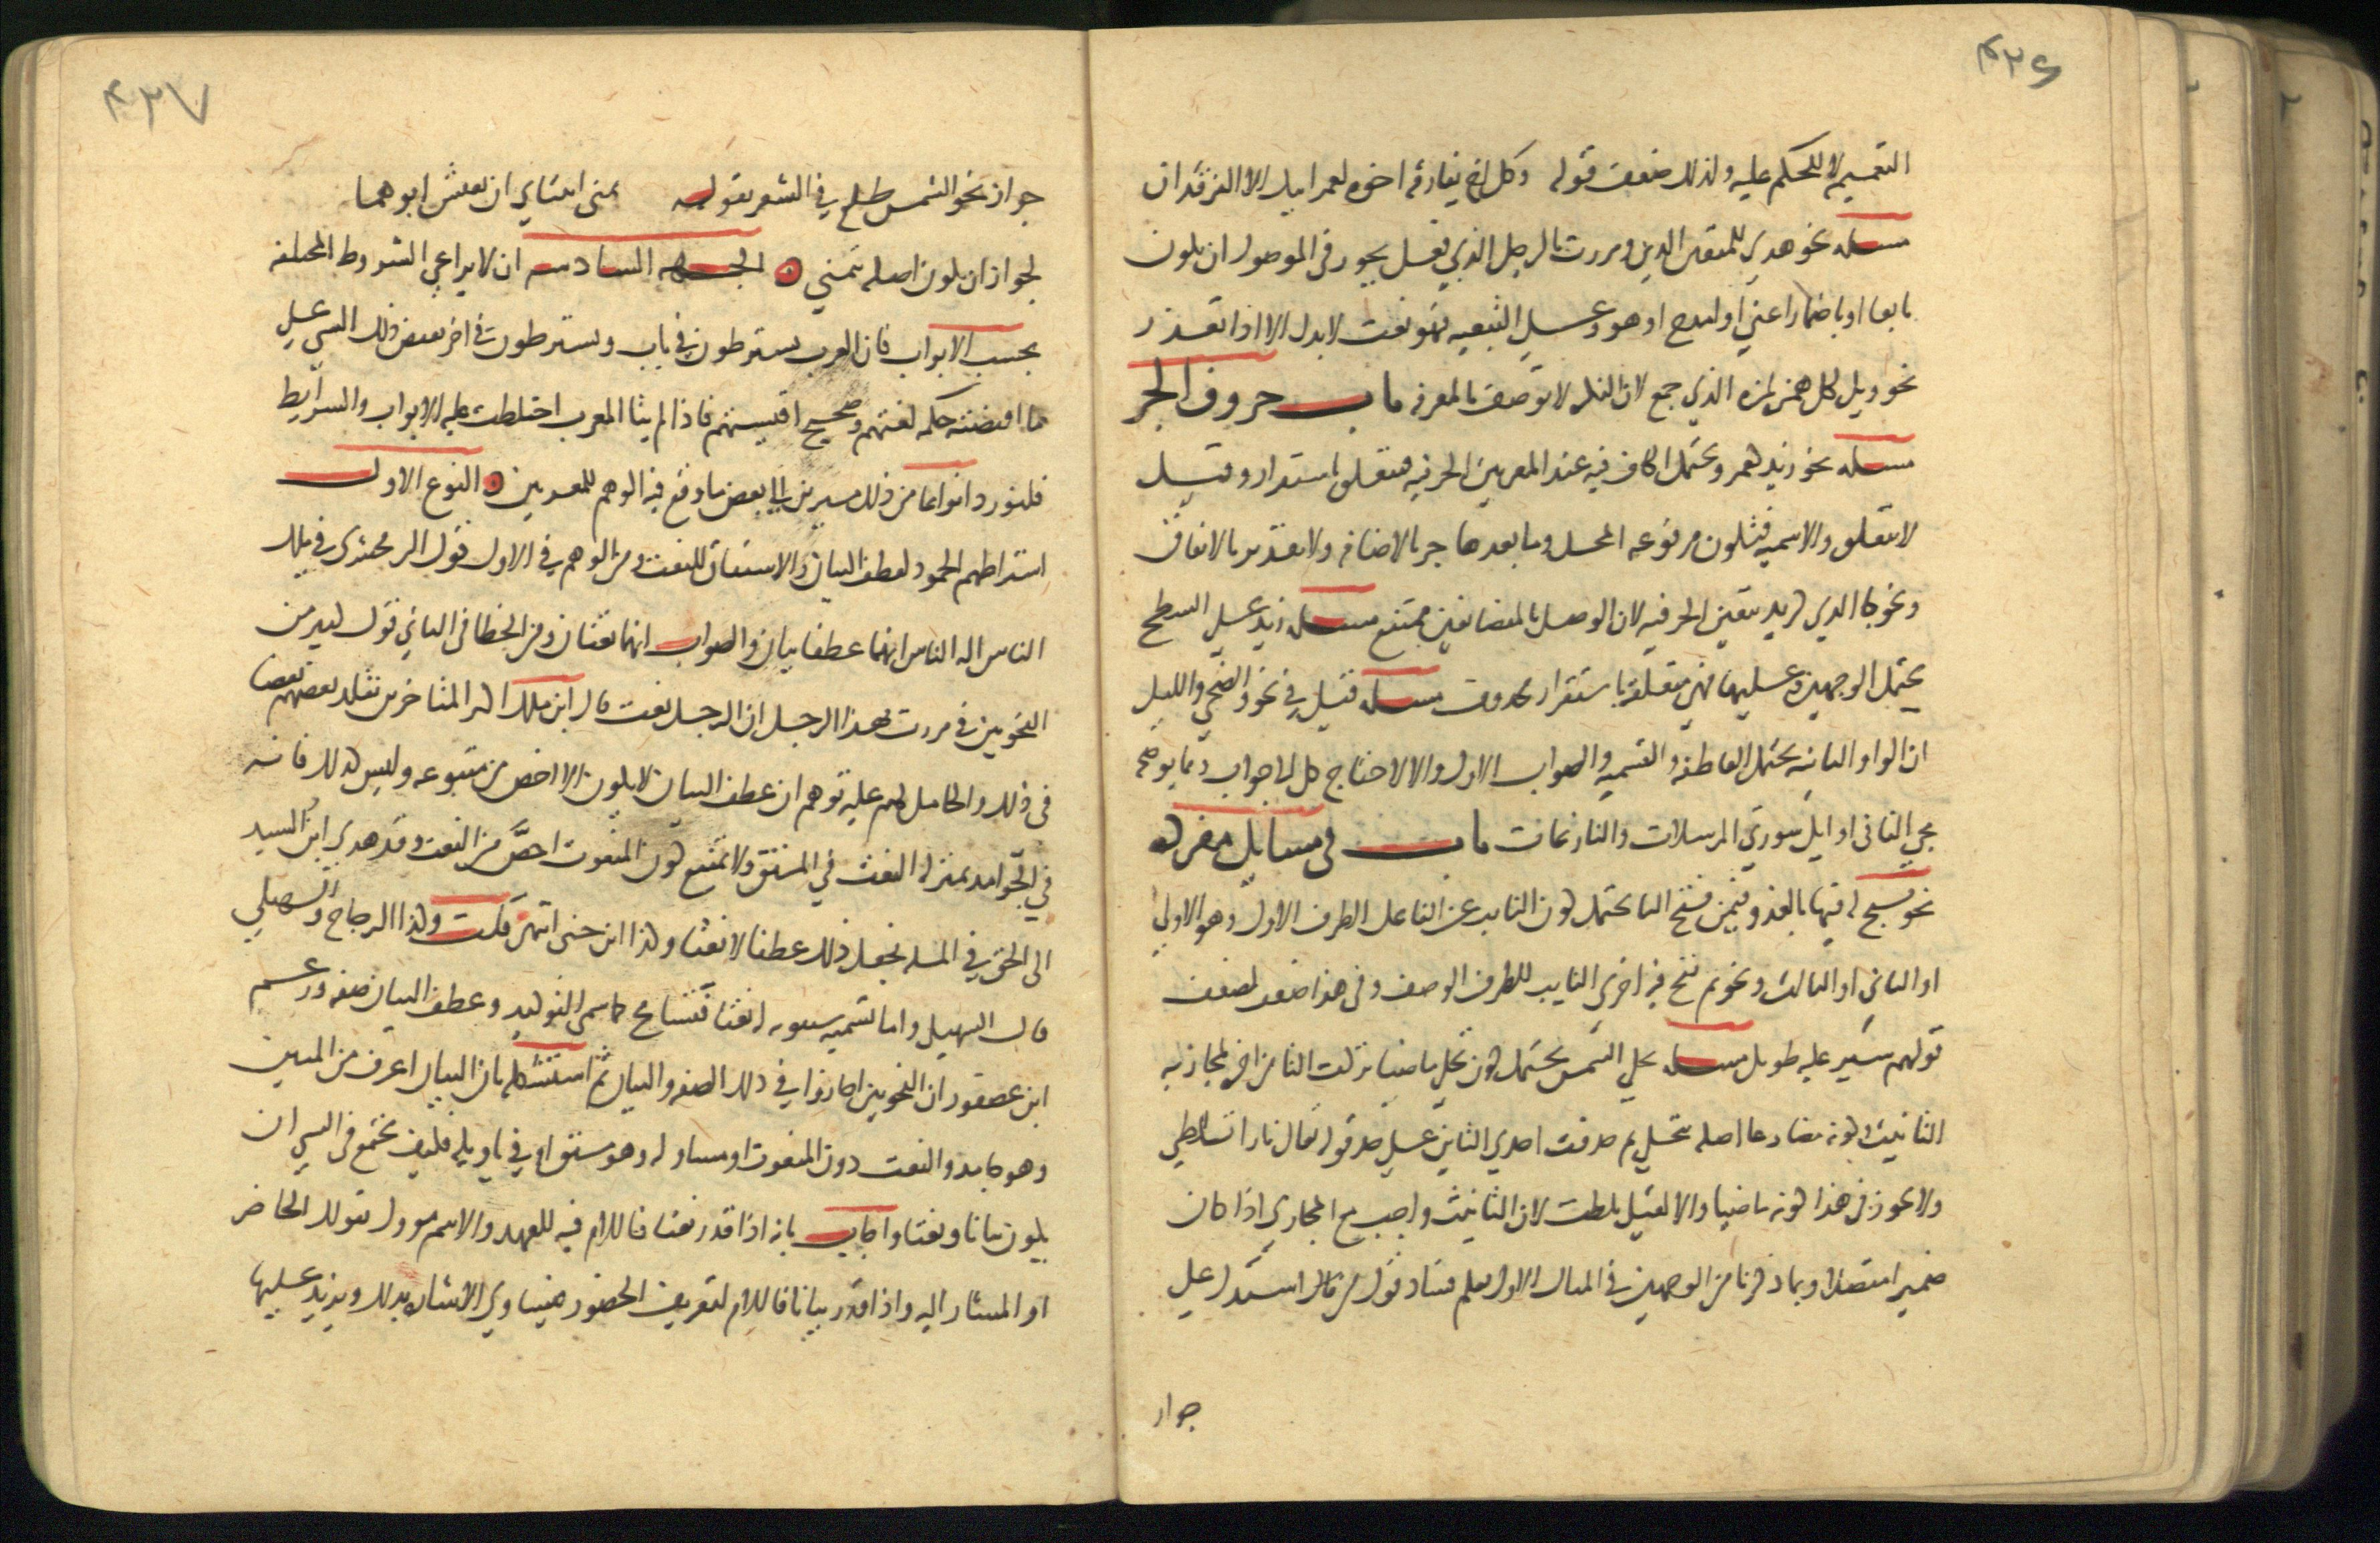 ٤٣٦
التعميم لا للحكم عليه ولذلك ضعف قوله وكل اخ يفارقه اخوه لعمر ابيك الا الفرقدان
مسله نحو هدي للمتقين الذين ومررت بالرجل الذي فعل يجوز في الموصول ان يكون
تابعا او باضمار اعني او امدح او هو وعلي التبعيه فهو نعت لا بدل الا اذا تعذر
نحو ويل لكل همزه لمزه الذي جمع لان النكره لا توصف بالمعرفه باب حروف الجر
مسله نحو زيد كعمرو يحتمل الكاف فيه عند المعربين الحرفيه فتتعلق باستقرار وقيل
لا تتعلق والاسميه فتكون مرفوعه المحل وما بعدها جر بالاضافه ولا تقدير بالاتفاق
ونحو جا الذي كزيد تتعين الحرفيه لان الوصل بالمتضايفين ممتنع مسله زيد علي السطح
يحتمل الوجهين وعليهما فهي متعلقه باستقرار محذوف مسله قيل في نحو والضحي والليل
ان الواو الثانيه يحتمل العاطفه والقسميه والصواب الاول والا لاحتاج كل الي جواب ومما يوضحه
مجي الفا في اوايل سورتي المرسلات والنازعات باب في مسايل مفرده
نحو يسبح له فيها بالغدو فيمن فتح البا يحتمل كون النايب عن الفاعل الظرف الاول وهو الاولي
او الثاني او الثالث ونحو ثم نفخ فيه اخري النايب للظرف الوصف وفي هذا ضعف لضعف
قولهم سير عليه طويل مسله تجلي الشمس يحتمل كون تجلي ماضيا تركت التا من اخره لمجازيه
التانيث وكونه مضارعا اصله تتجلي ثم حذفت احدي التاين علي حد قوله تعالي نارا تلظي
ولا يجوز في هذا كونه ماضيا والا لقيل تلظت لان التانيث واجب مع المجازي اذا كان
ضميرا متصلا وبما ذكرنا من الوجهين في المثال الاول يعلم فساد قول من قال استدل علي
جواز
٤٣٧
جواز نحو الشمس طلع في الشعر بقوله تمني ابنتاي ان يعيش ابوهما
لجواز ان يكون اصله تتمني الجهه السادسه ان لا يراعي الشروط المختلفه
بحسب الابواب فان العرب يشترطون في باب ويشترطون في اخر نقيض ذلك الشي علي
ما اقتضته حكمه لغتهم وصحيح اقيستهم فاذا لم يتامل المعرب اختلطت عليه الابواب والشرايط
فلنورد انواعا من ذلك مشيرين الي بعض ما وقع فيه الوهم للمعربين النوع الاول
اشتراطهم الجمود لعطف البيان والاشتقاق للنعت ومن الوهم في الاول قول الزمخشري في ملك
الناس اله الناس انهما عطفا بيان والصواب انهما نعتان ومن الخطا في الثاني قول كثير من
النحويين في مررت بهذا الرجل ان الرجل نعت قال ابن ملك اكثر المتاخرين يقلد بعضهم بعضا
في ذلك والحامل لهم عليه توهم ان عطف البيان لا يكون الا اخص من متبوعه وليس كذلك فانه
في الجوامد بمنزله النعت في المشتق ولا يمتنع كون المنعوت اخص من النعت وقد هدي ابن السيد
الي الحق في المسله فجعل ذلك عطفا لا نعتا وكذا ابن جني انتهي قلت وكذا الزجاج والسهيلي
قال السهيلي واما تسميه سيبويه له نعتا فتسامح كما سمي التوكيد وعطف البيان صفه وزعم
ابن عصفور ان النحويين اجازوا في ذلك الصفه والبيان ثم استشكله بان البيان اعرف من المبين
وهو جامد والنعت دون المنعوت او مساو له وهو مشتق او في تاويله فكيف يجتمع في الشي ان
يكون بيانا ونعتا واجاب بانه اذا قدر نعتا فاللام فيه للعهد والاسم موول بقولك الحاضر
او المشار اليه واذا قدر بيانا فاللام لتعريف الحضور فيساوي الاشاره بذلك ويزيد عليها